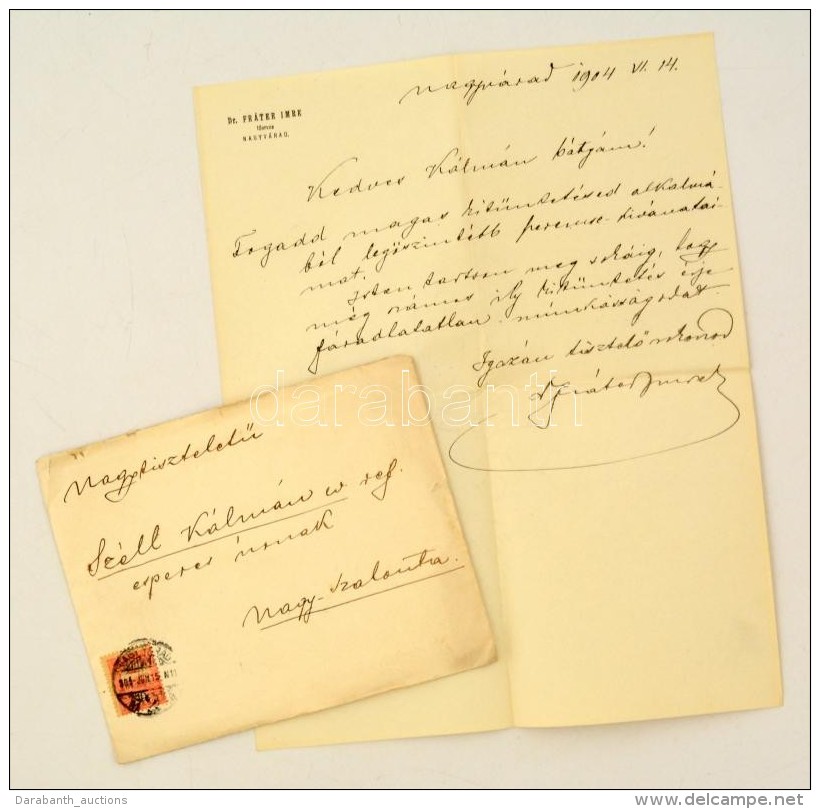 Nagyvárad 1904 VI. 14.
Dr. FRÁTER IMRE
főorvos
NAGYVÁRAD.
Kedves Kálmán bátyám!
Fogadd magas kitüntetésed alkalmá-
ból legőszintébb szerencse-kivánatai-
mat.
Isten tartson meg sokáig, hogy
még számos ily kitüntetés érje
fáradhatatlan munkásságodat.
Igazán tisztelő rokonod
Fráter Imre
darabanth
Nagytiszteletü
Széll Kálmán ev ref.
esperes úrnak
Nagy-Szalonta.
Darabanth_auctions
delcampe.net